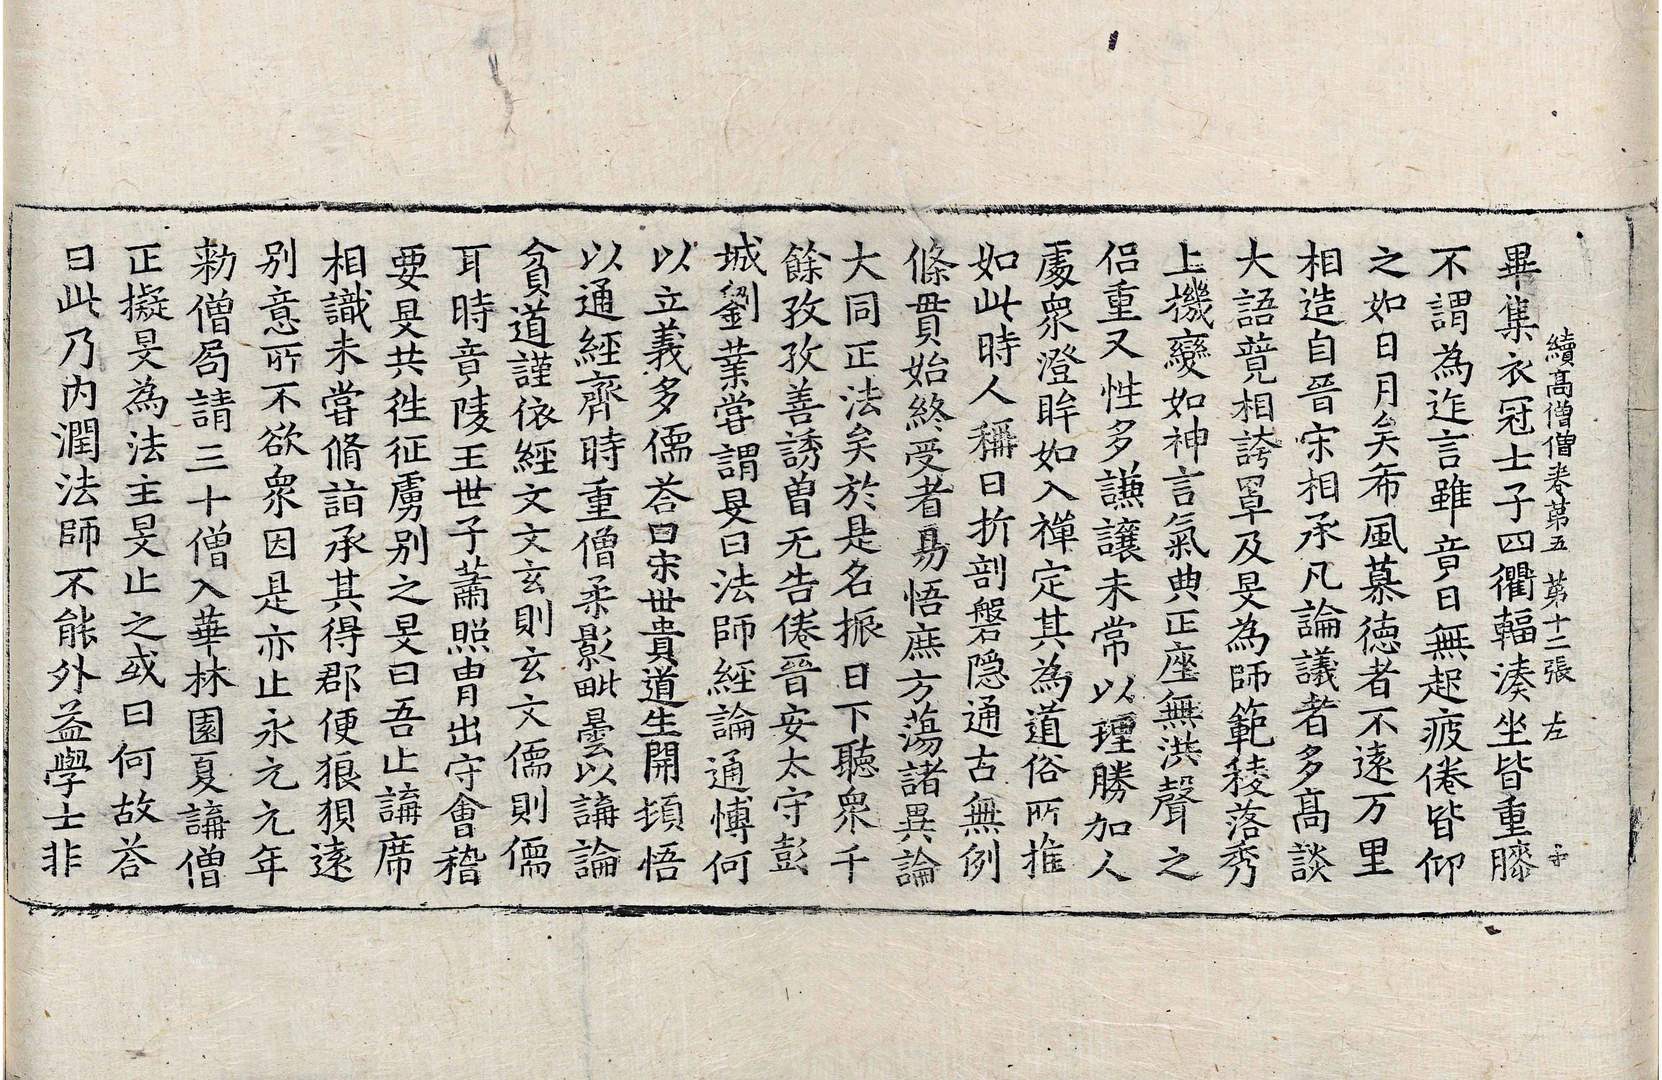 續高僧僧卷苐五 第十二張 左
畢集衣冠士子四衢輻湊坐皆重膝
不謂為迮言雖竟日無起疲倦皆仰
之如日月矣希風慕德者不遠万里
相造自晉宋相承凡論議者多髙談
大語竟相誇罩及旻為師範稜落秀
上機變如神言氣典正座無洪聲之
侶重又性多謙讓未常以理勝加人
處衆澄眸如入禪定其為道俗所推
如此時人稱曰折剖磐隠通古無例
條貫始終受者易悟庶方蕩諸異論
大同正法矣於是名振日下聽衆千
餘孜孜善誘曽无告倦晉安太守彭
城劉業嘗謂旻曰法師經論通愽何
以立義多儒荅曰宋世貴道生開頓悟
以通經齊時重僧柔影毗曇以講論
貧道謹依經文文玄則玄文儒則儒
耳時竟陵王世子蕭照胄出守會稽
要旻共徃征虜别之旻曰吾止講席
相識未嘗脩詣承其得郡便狼狽遠
别意所不欲衆因是亦止永元元年
勑僧局請三十僧入華林園夏講僧
正擬旻為法主旻止之或曰何故荅
曰此乃内潤法師不能外益學士非